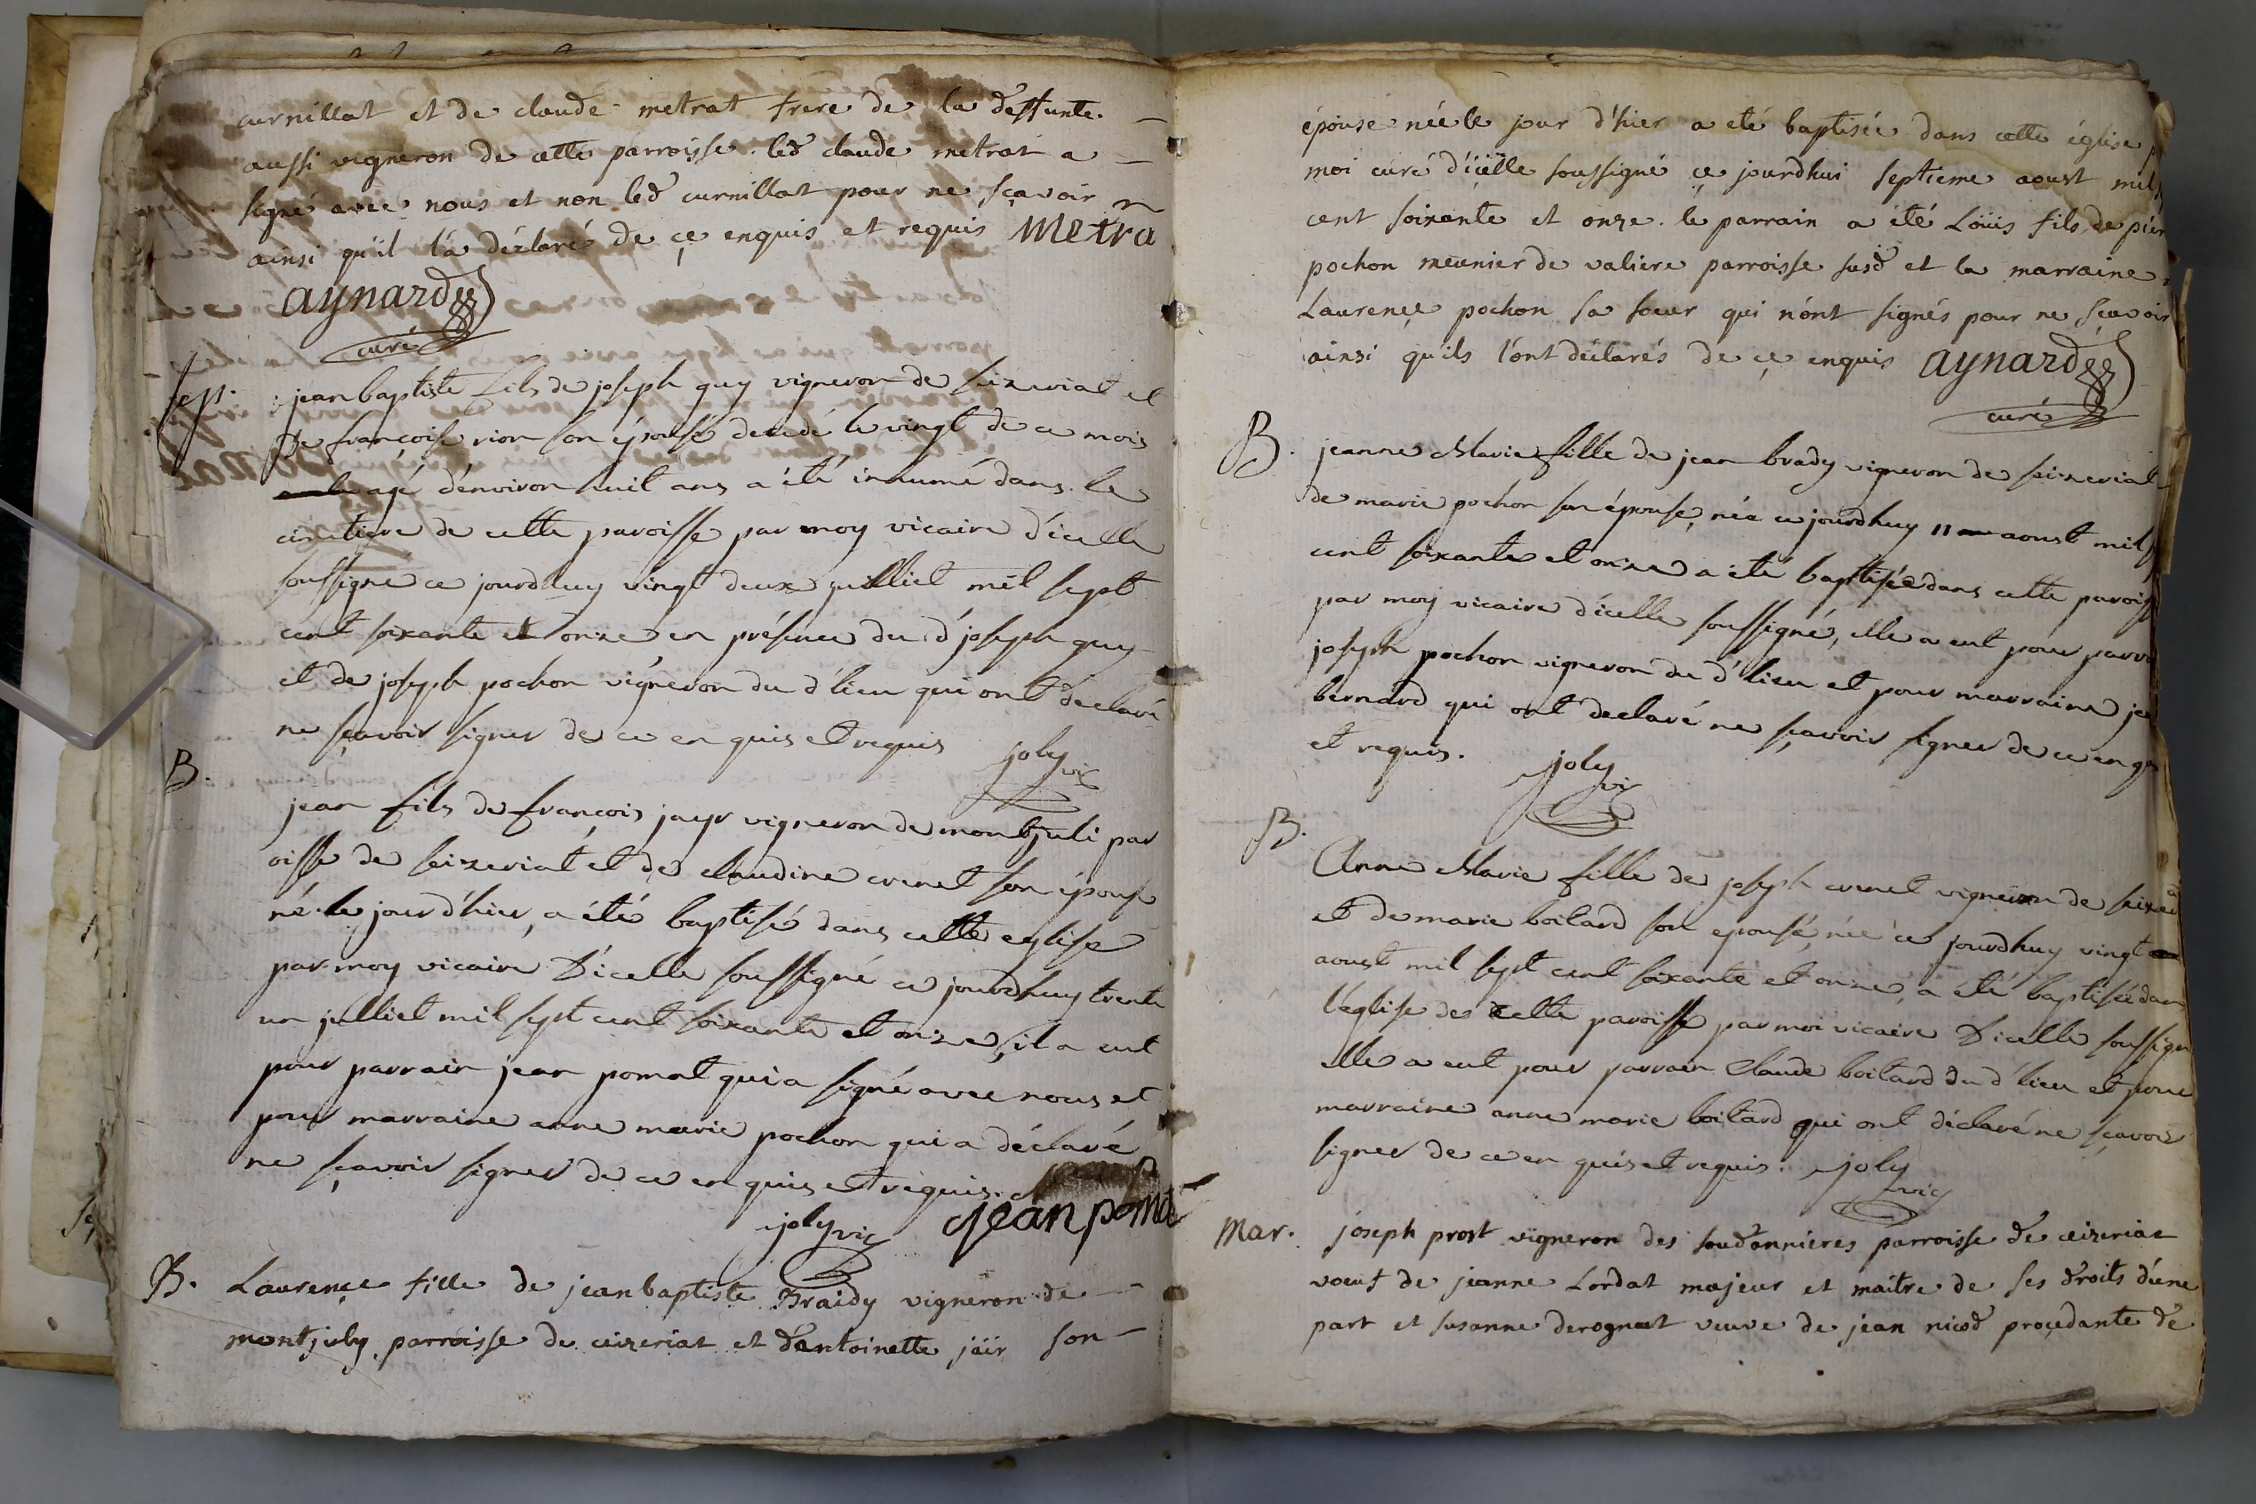 curnillat et de claude metrat frere de la deffunte
aussi vigneron de cette parroisse. led claude metrat a
signé avec nous et non led curnillat pour ne sçavoir
ainsi qu'il l'a déclaré de çe enquis et requis Metra
aynard
curé
sep. jean baptiste fils de joseph guy vigneron de seizeriat et
de françoise rion son épouse decedé le vingt de ce mois
agé d'environ huit ans a été inhumé dans le
cimetiere de cette paroisse par moy vicaire d'icelle
soussigné ce jourdhuy vingt deux juilliet mil sept
cent soixante et onze en présence du d joseph guy
et de joseph pochon vigneron du d lieu qui ont declaré
ne sçavoir signer de ce en quis et requis joly vic
B.
jean fils de françois jayr vigneron de montjuli par
oisse de seizeriat et de claudine crenet son épouse
né le jour d'hier, a été baptisé dans cette eglise
par moy vicaire D'icelle soussigné ce jourdhuy trente
un julliet mil sept cent soixante et onze, il a eut
pour parrain jean pomat qui a signé avec nous et
pour marraine anne marie pochon qui a déclaré
ne sçavoir signer de ce en quis et requis.
joly vic jean poma
B. Laurençe fille de jean baptiste Braidy vigneron de
montjuly parroisse de ceizeriat et d'antoinette jaïr son
épouse née le jour d'hier a eté baptisée dans cette église
moi curé d'icelle soussigné çe jourdhui septieme aoust mil
cent soixante et onze. le parrain a été Loüis fils de pier
pochon meunier de valiere parroisse susd et la marraine
Laurençe pochon sa soeur qui n'ont signés pour ne sçavoir
ainsi qu'ils l'ont déclarés de çe enquis aynard
curé
B. jeanne Marie fille de jean brady vigneron de seizeriat
de marie pochon son épouse, née ce jourdhuy 11 aoust mil
cent soixante et onze a été baptisée dans cette parois
par moy vicaire d'icelle soussigné, elle a eut pour parra
joseph pochon vigneron du d lieu et pour marraine je
bernard qui ont declaré ne sçavoir signer de ce en q
et requis. joly vic
B.
Anne Marie fille de joseph crenet vigneron de seize
et de marie boitard son epouse, née ce jourdhuy vingt
aoust mil sept cent soixante et onze, a été baptisée dan
l'eglise de cette paroisse par moi vicaire D'icelle soussign
elle a eut pour parrain Claude boitard du d lieu et pour
marraine anne marie boitard qui ont déclaré ne sçavoir
signer de ce en quis et requis. joly
vic
Mar. joseph prost vigneron des soudonnieres parroisse de ceizeriat
voeuf de jeanne Lordat majeur et maitre de ses droits d'une
part et susanne derognat veuve de jean nicod proçedante de